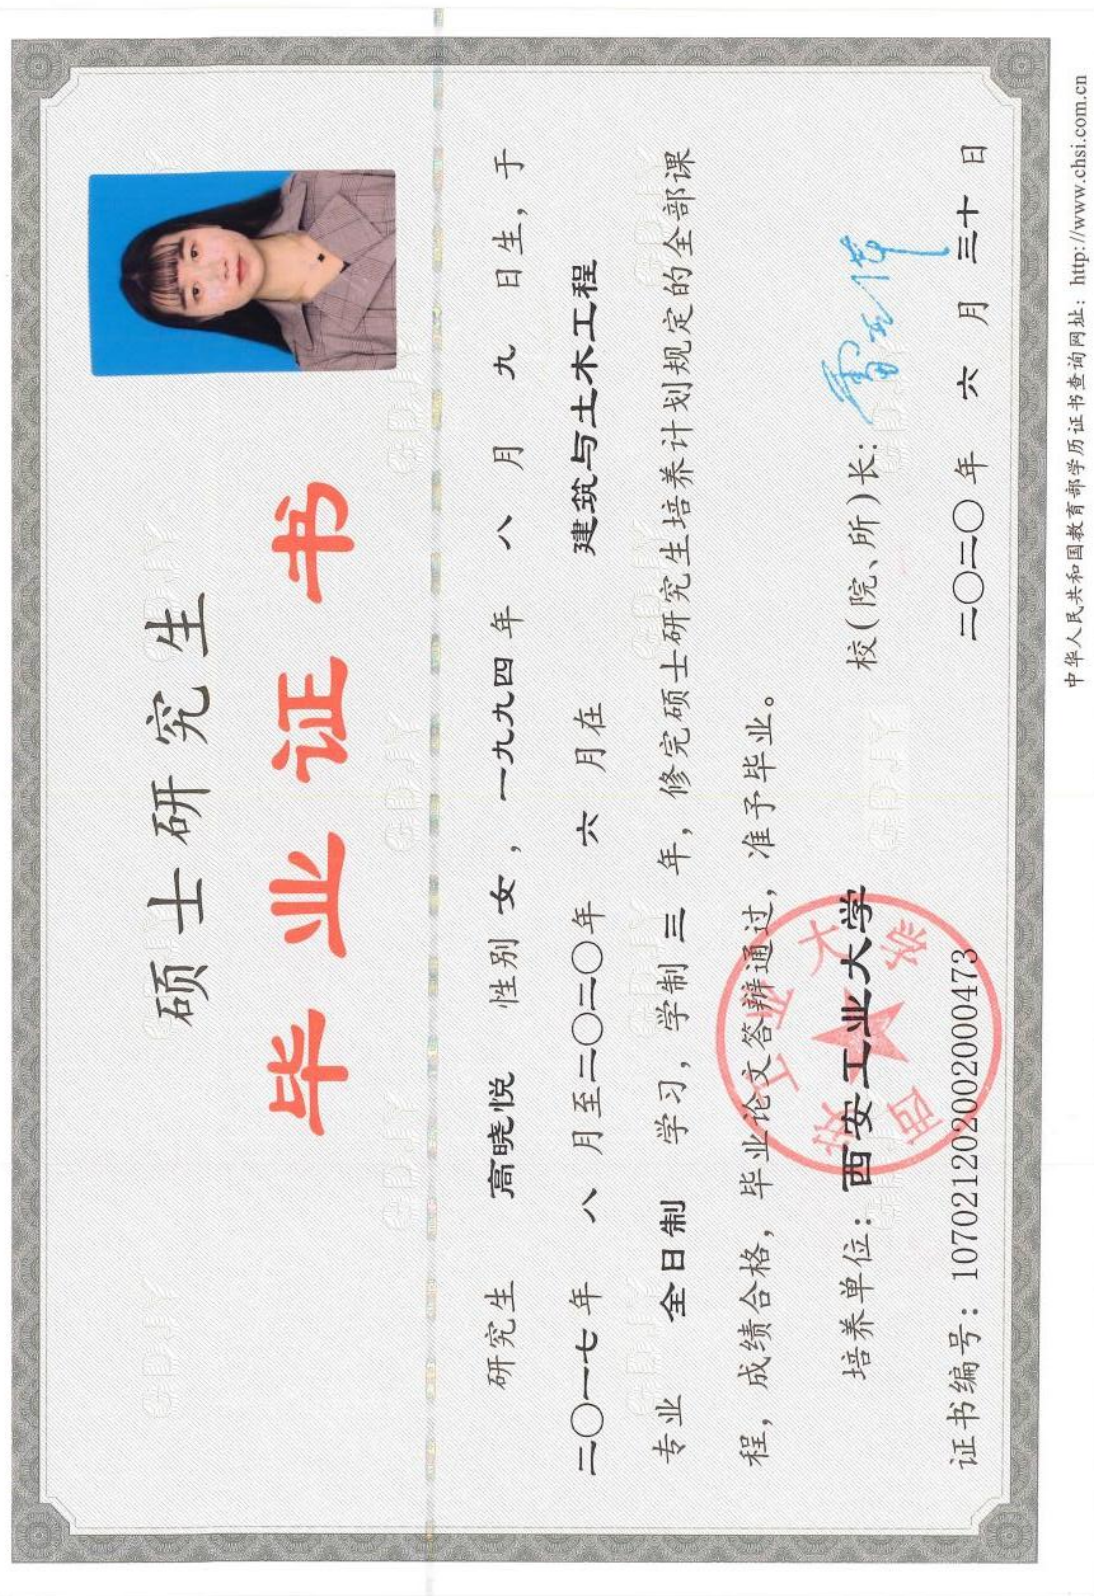 硕士研究生
毕业证书
研究生 高晓悦 性别 女，一九九四 年 八 月 九 日生，于
二〇一七 年 八 月至二〇二〇年 六 月在 建筑与土木工程
专业 全日制 学习，学制 三 年，修完硕士研究生培养计划规定的全部课
程，成绩合格，毕业论文答辩通过，准予毕业。
培养单位：西安工业大学 校(院、所)长：
西安工业大学
证书编号：107021202002000473 二〇二〇 年 六 月 三十 日
中华人民共和国教育部学历证书查询网址：http://www.chsi.com.cn